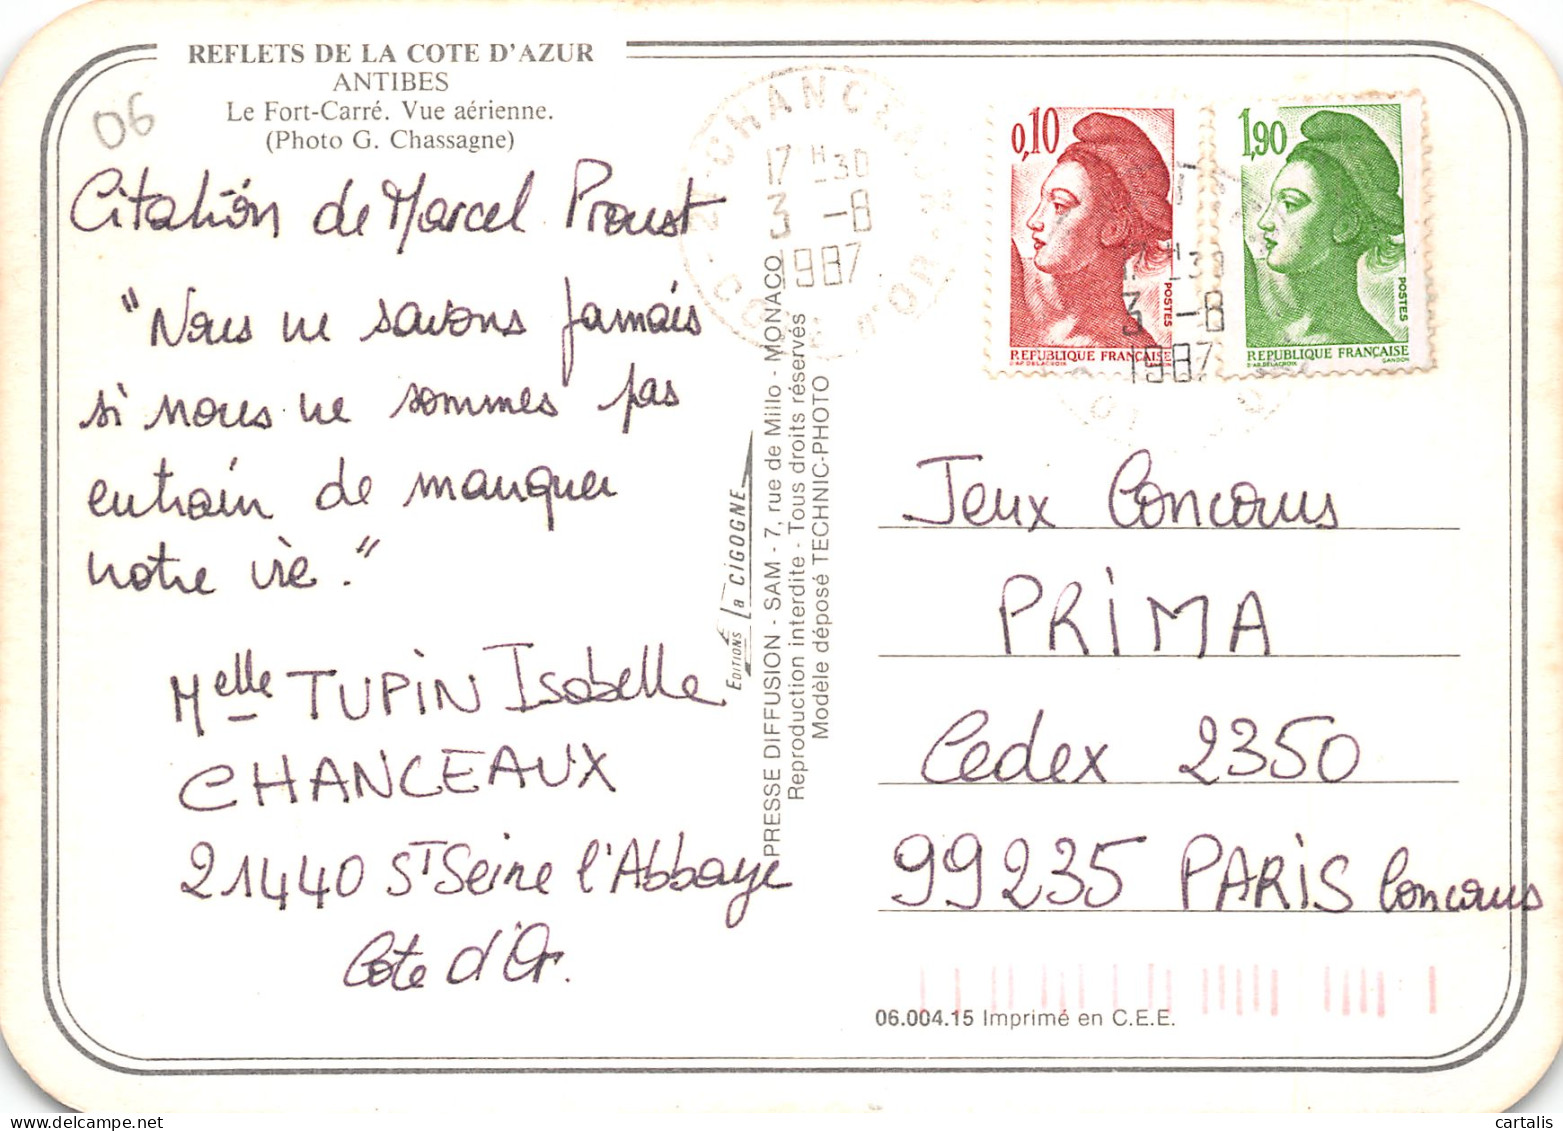 REFLETS DE LA COTE D'AZUR
ANTIBES
Le Fort-Carré. Vue aérienne.
(Photo G. Chassagne)
06
Citation de Marcel Proust
"Nous ne savons jamais
si nous ne sommes pas
entrain de manquer
notre vie."
Melle TUPIN Isabelle
CHANCEAUX
21440 ST Seine l'Abbaye
Cote d'Or.
EDITIONS la CIGOGNE
PRESSE DIFFUSION - SAM - 7, rue de Millo - MONACO
Reproduction interdite - Tous droits réservés
Modèle déposé TECHNIC-PHOTO
17 H 30
3 -8
1987
0,10
POSTES
REPUBLIQUE FRANÇAISE
D'AP. DELACROIX
1,90
POSTES
REPUBLIQUE FRANÇAISE
D'AP. DELACROIX GANDON
17 H 30
3 -8
1987
Jeux Concours
PRIMA
Cedex 2350
99235 PARIS Concours
06.004.15 Imprimé en C.E.E.
cartalis